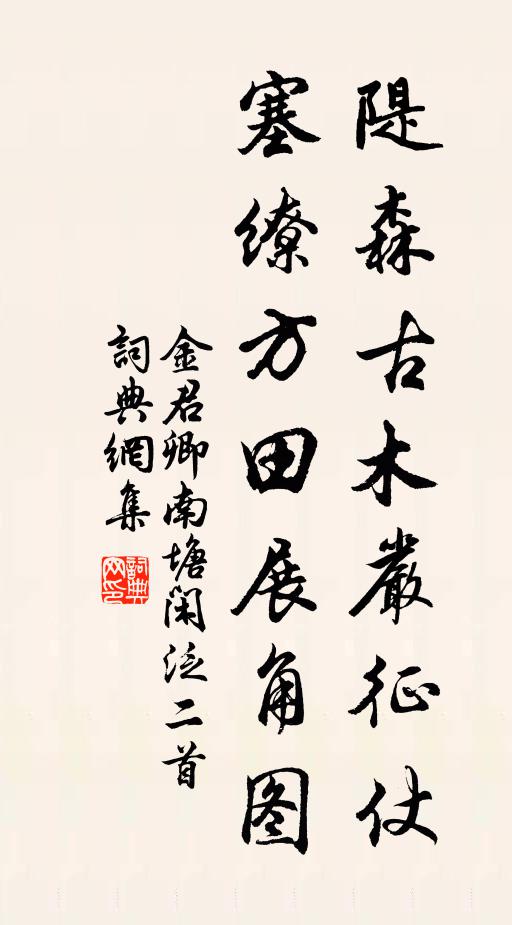 隄森古木嚴征仗
塞繚方田展角图
金君卿南塘閑泛二首
詞典網集
詞典网印